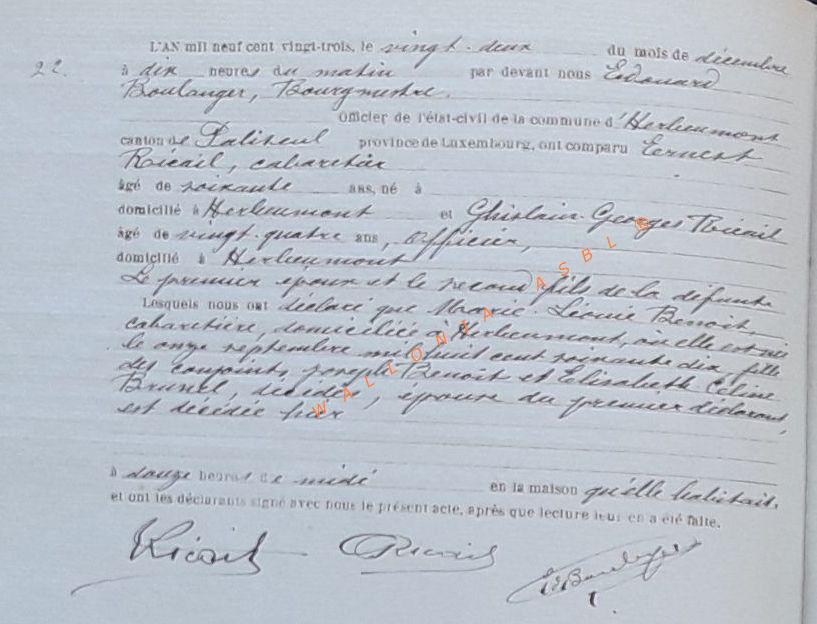 L'AN mil neuf cent vingt-trois, le vingt-deux du mois de décembre
22. à dix heures du matin par devant nous Edouard
Boulanger, Bourgmestre.
Officier de l'état-civil de la commune d'Herbeumont
canton de Paliseul province de Luxembourg, ont comparu Ernest
Ricail, cabaretier
âgé de soixante ans, né à
domicilié à Herbeumont et Ghislain-Georges Ricail
âgé de vingt-quatre ans, Officier,
domicilié à Herbeumont
Le premier époux et le second fils de la défunte
Lesquels nous ont déclaré que Marie-Léonie Benoit
cabaretière, domiciliée à Herbeumont, où elle est née
le onze septembre mil huit cent soixante dix, fille
des conjoints Joseph Benoit et Elisabeth Céline
Brunel, décédés, épouse du premier déclarant,
est décédée hier
à douze heures de midi en la maison qu'elle habitait,
et ont les déclarants signé avec nous le présent acte, après que lecture leur en a été faite.
Ricail GRicail EdBoulanger
WALLONIA ASBL ©